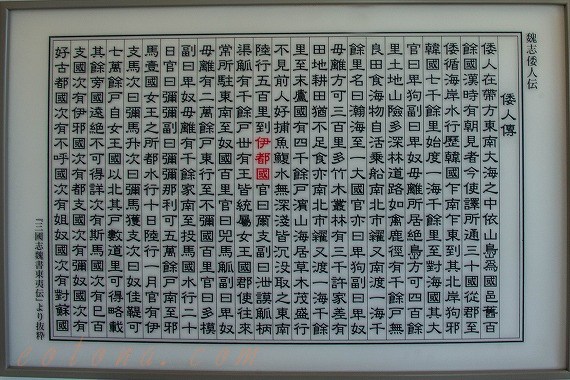 魏志倭人伝
倭人傳
倭人在帶方東南大海之中依山島爲國邑舊百
餘國漢時有朝見者今使譯所通三十國從郡至
倭循海岸水行歷韓國乍南乍東到其北岸狗邪
韓國七千餘里始度一海千餘里至對海國其大
官曰卑狗副曰卑奴毋離所居絶島方可四百餘
里土地山險多深林道路如禽鹿徑有千餘戸無
良田食海物自活乗船南北市糴又南渡一海千
餘里名曰瀚海至一大國官亦曰卑狗副曰卑奴
毋離方可三百里多竹木叢林有三千許家差有
田地耕田猶不足食亦南北市糴又渡一海千餘
里至末盧國有四千餘戸濱山海居草木茂盛行
不見前人好捕魚鰒水無深淺皆沉没取之東南
陸行五百里到伊都國官曰爾支副曰泄謨觚柄
渠觚有千餘戸丗有王皆統屬女王國郡使往來
常所駐東南至奴國百里官曰兕馬觚副曰卑奴
毋離有二萬餘戸東行至不彌國百里官曰多模
副曰卑奴毋離有千餘家南至投馬國水行二十
日官曰彌彌副曰彌彌那利可五萬餘戸南至邪
馬壹國女王之所都水行十日陸行一月官有伊
支馬次曰彌馬升次曰彌馬獲支次曰奴佳鞮可
七萬餘戸自女王國以北其戸數道里可得略載
其餘旁國遠絶不可得詳次有斯馬國次有已百
支國次有伊邪國次有都支國次有彌奴國次有
好古都國次有不呼國次有姐奴國次有對蘇國
『三國志魏書東夷伝』より抜粋